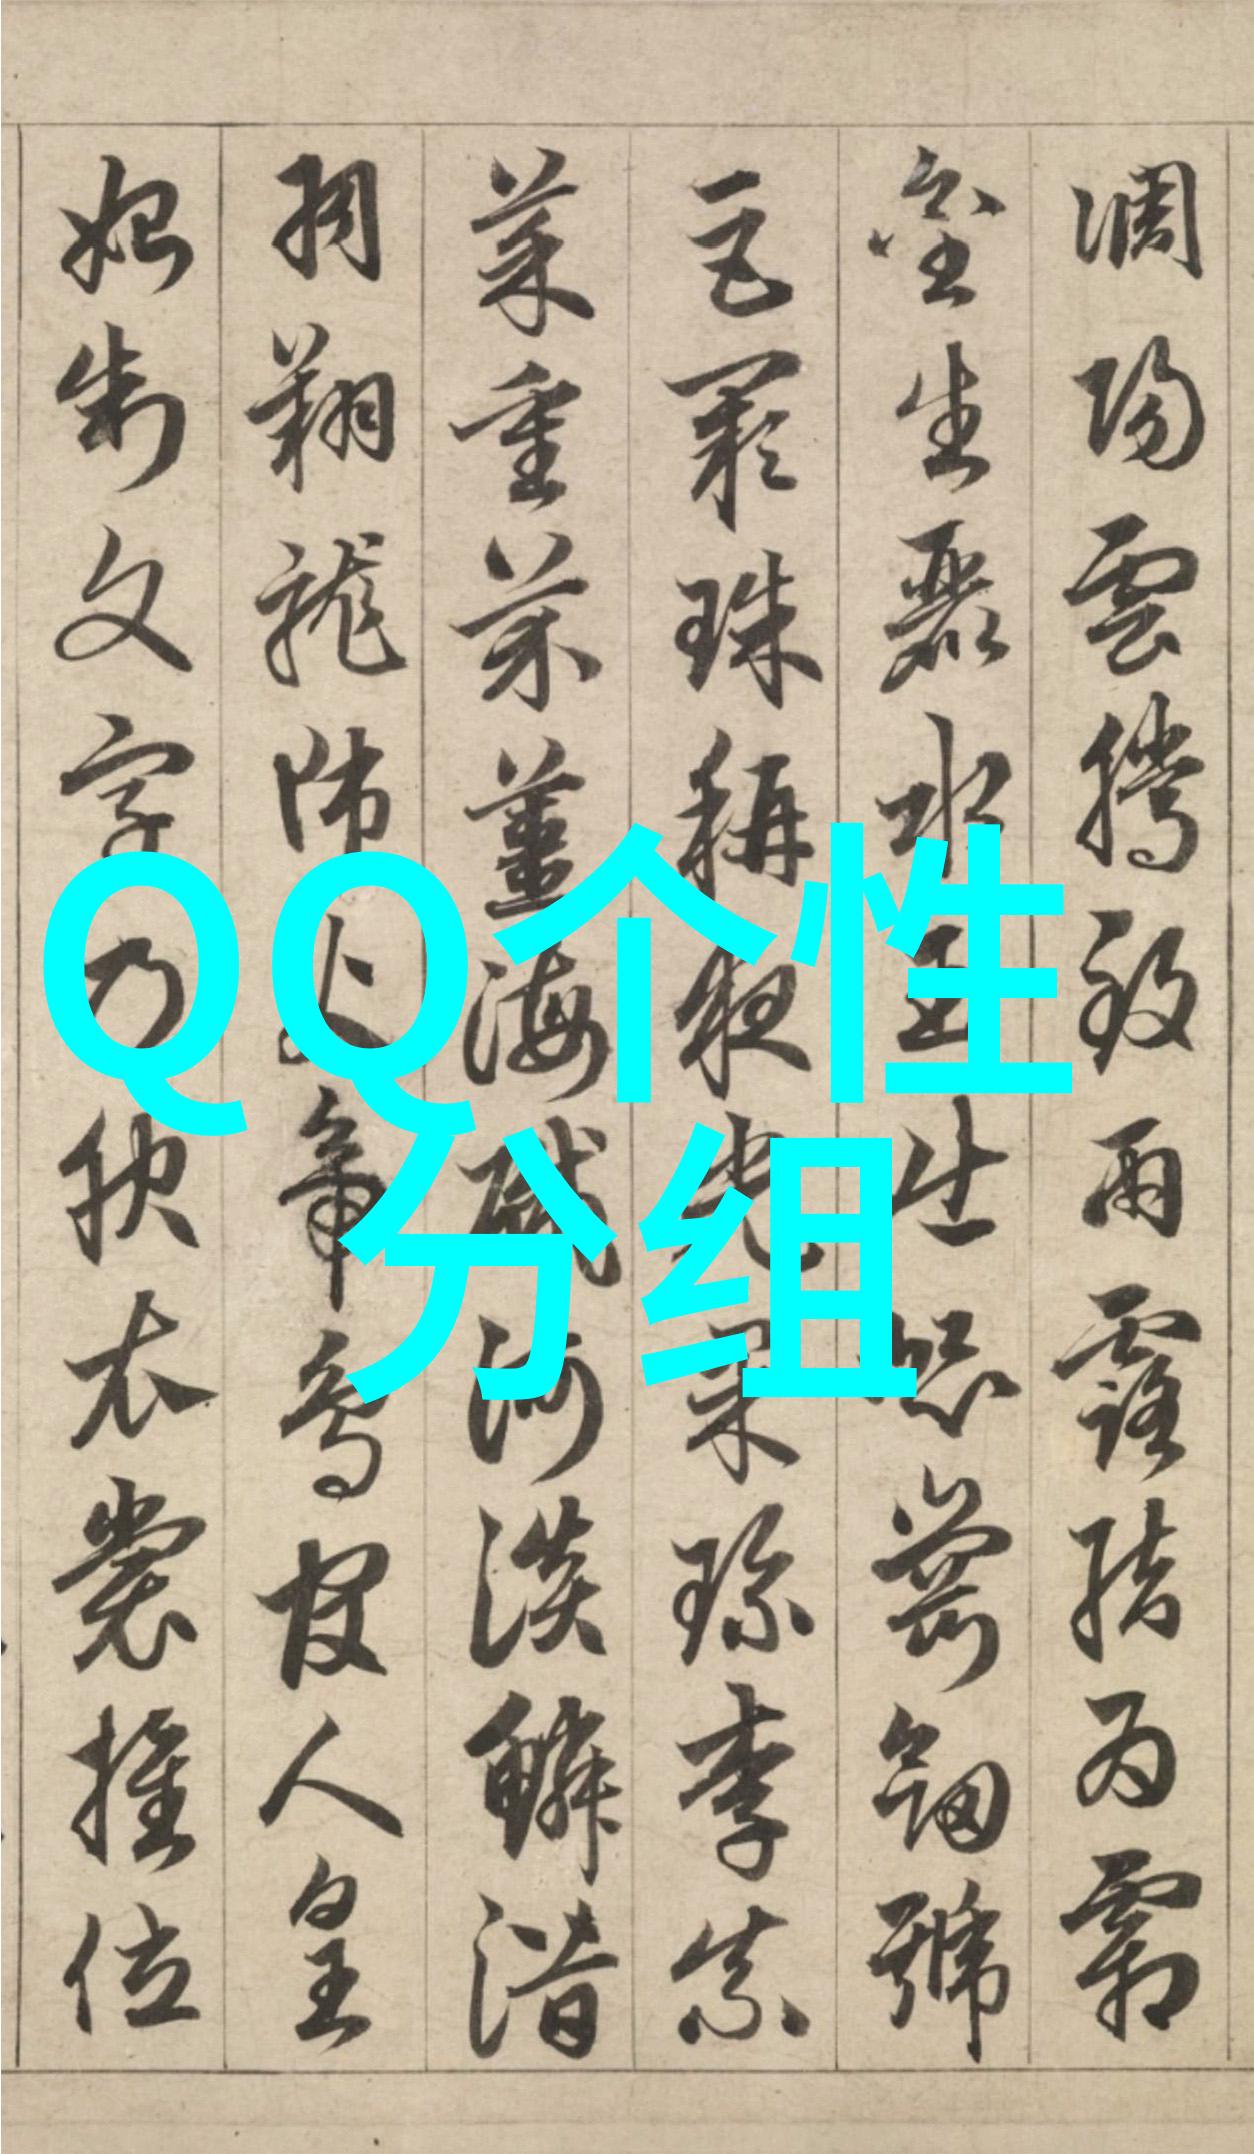 調陽雲騰致雨露結為霜
金生麗水玉出崑崗劍號
巨闕珠稱夜光果珍李柰
菜重芥薑海鹹河淡鱗潛
羽翔龍師火帝鳥官人皇
始制文字乃服衣裳推位
QQ个性
分组